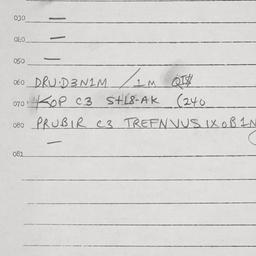 030 —
040 —
050 —
060 DRU·D3N1M / 1M
070 KOP C3 S+L8-AK (240
080 PRUBIR C3 TREFNVUS IXOB1N
081 —